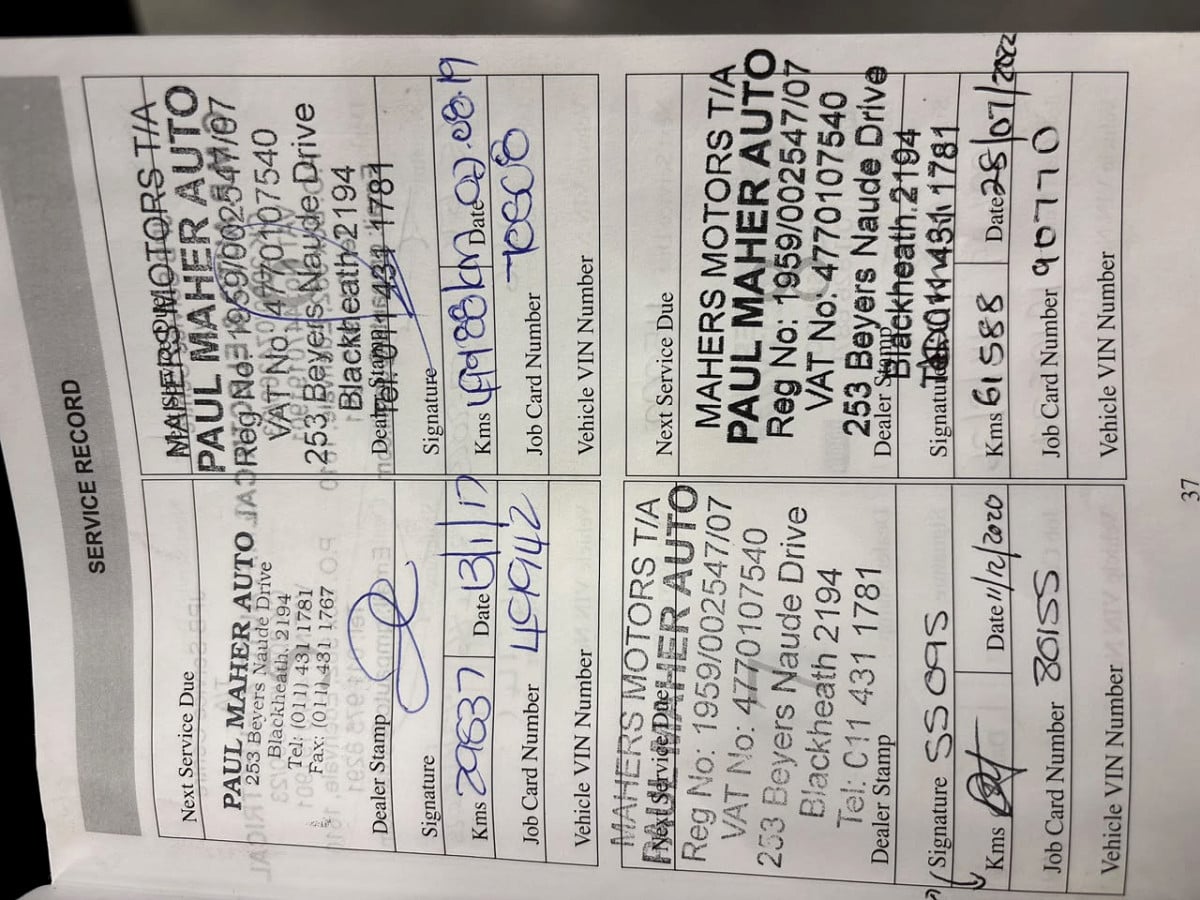 SERVICE RECORD
Next Service Due
PAUL MAHER AUTO
253 Beyers Naude Drive
Blackheath, 2194
Tel: (011) 431 1781
Fax: (011) 431 1767
Dealer Stamp
Signature
Kms 29637 Date 13/1/17
Job Card Number 49942
Vehicle VIN Number
MAHERS MOTORS T/A
PAUL MAHER AUTO
Reg No: 1959/002547/07
VAT No: 4770107540
253 Beyers Naude Drive
Blackheath 2194
Tel: 011 431 1781
Dealer Stamp
Signature
Kms 49988km Date 02.08.19
Job Card Number
Vehicle VIN Number
MAHERS MOTORS T/A
Next Service Due
PAUL MAHER AUTO
Reg No: 1959/002547/07
VAT No: 4770107540
253 Beyers Naude Drive
Blackheath 2194
Tel: C11 431 1781
Dealer Stamp
Signature 55095
Kms Date 11/12/2020
Job Card Number 80155
Vehicle VIN Number
Next Service Due
MAHERS MOTORS T/A
PAUL MAHER AUTO
Reg No: 1959/002547/07
VAT No: 4770107540
253 Beyers Naude Drive
Dealer Stamp
Blackheath, 2194
Signature Tel: 011 431 1781
Kms 61588 Date 28/07/2022
Job Card Number 907710
Vehicle VIN Number
37